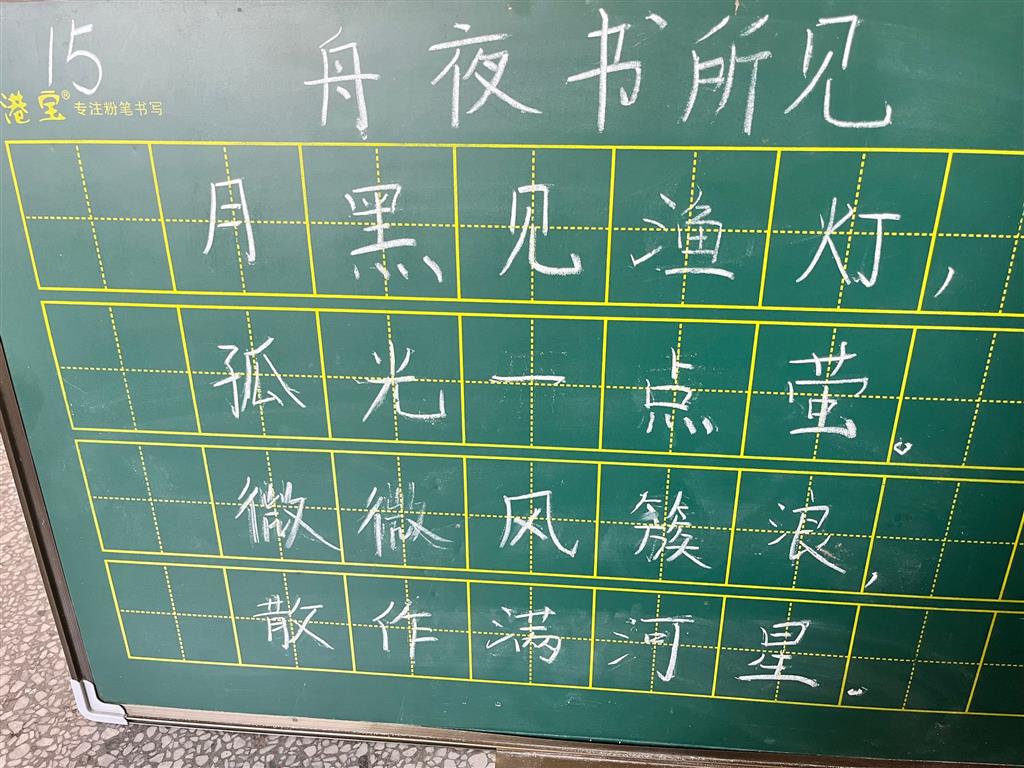 15
舟夜书所见
港宝® 专注粉笔书写
月黑见渔灯,
孤光一点萤。
微微风簇浪,
散作满河星。